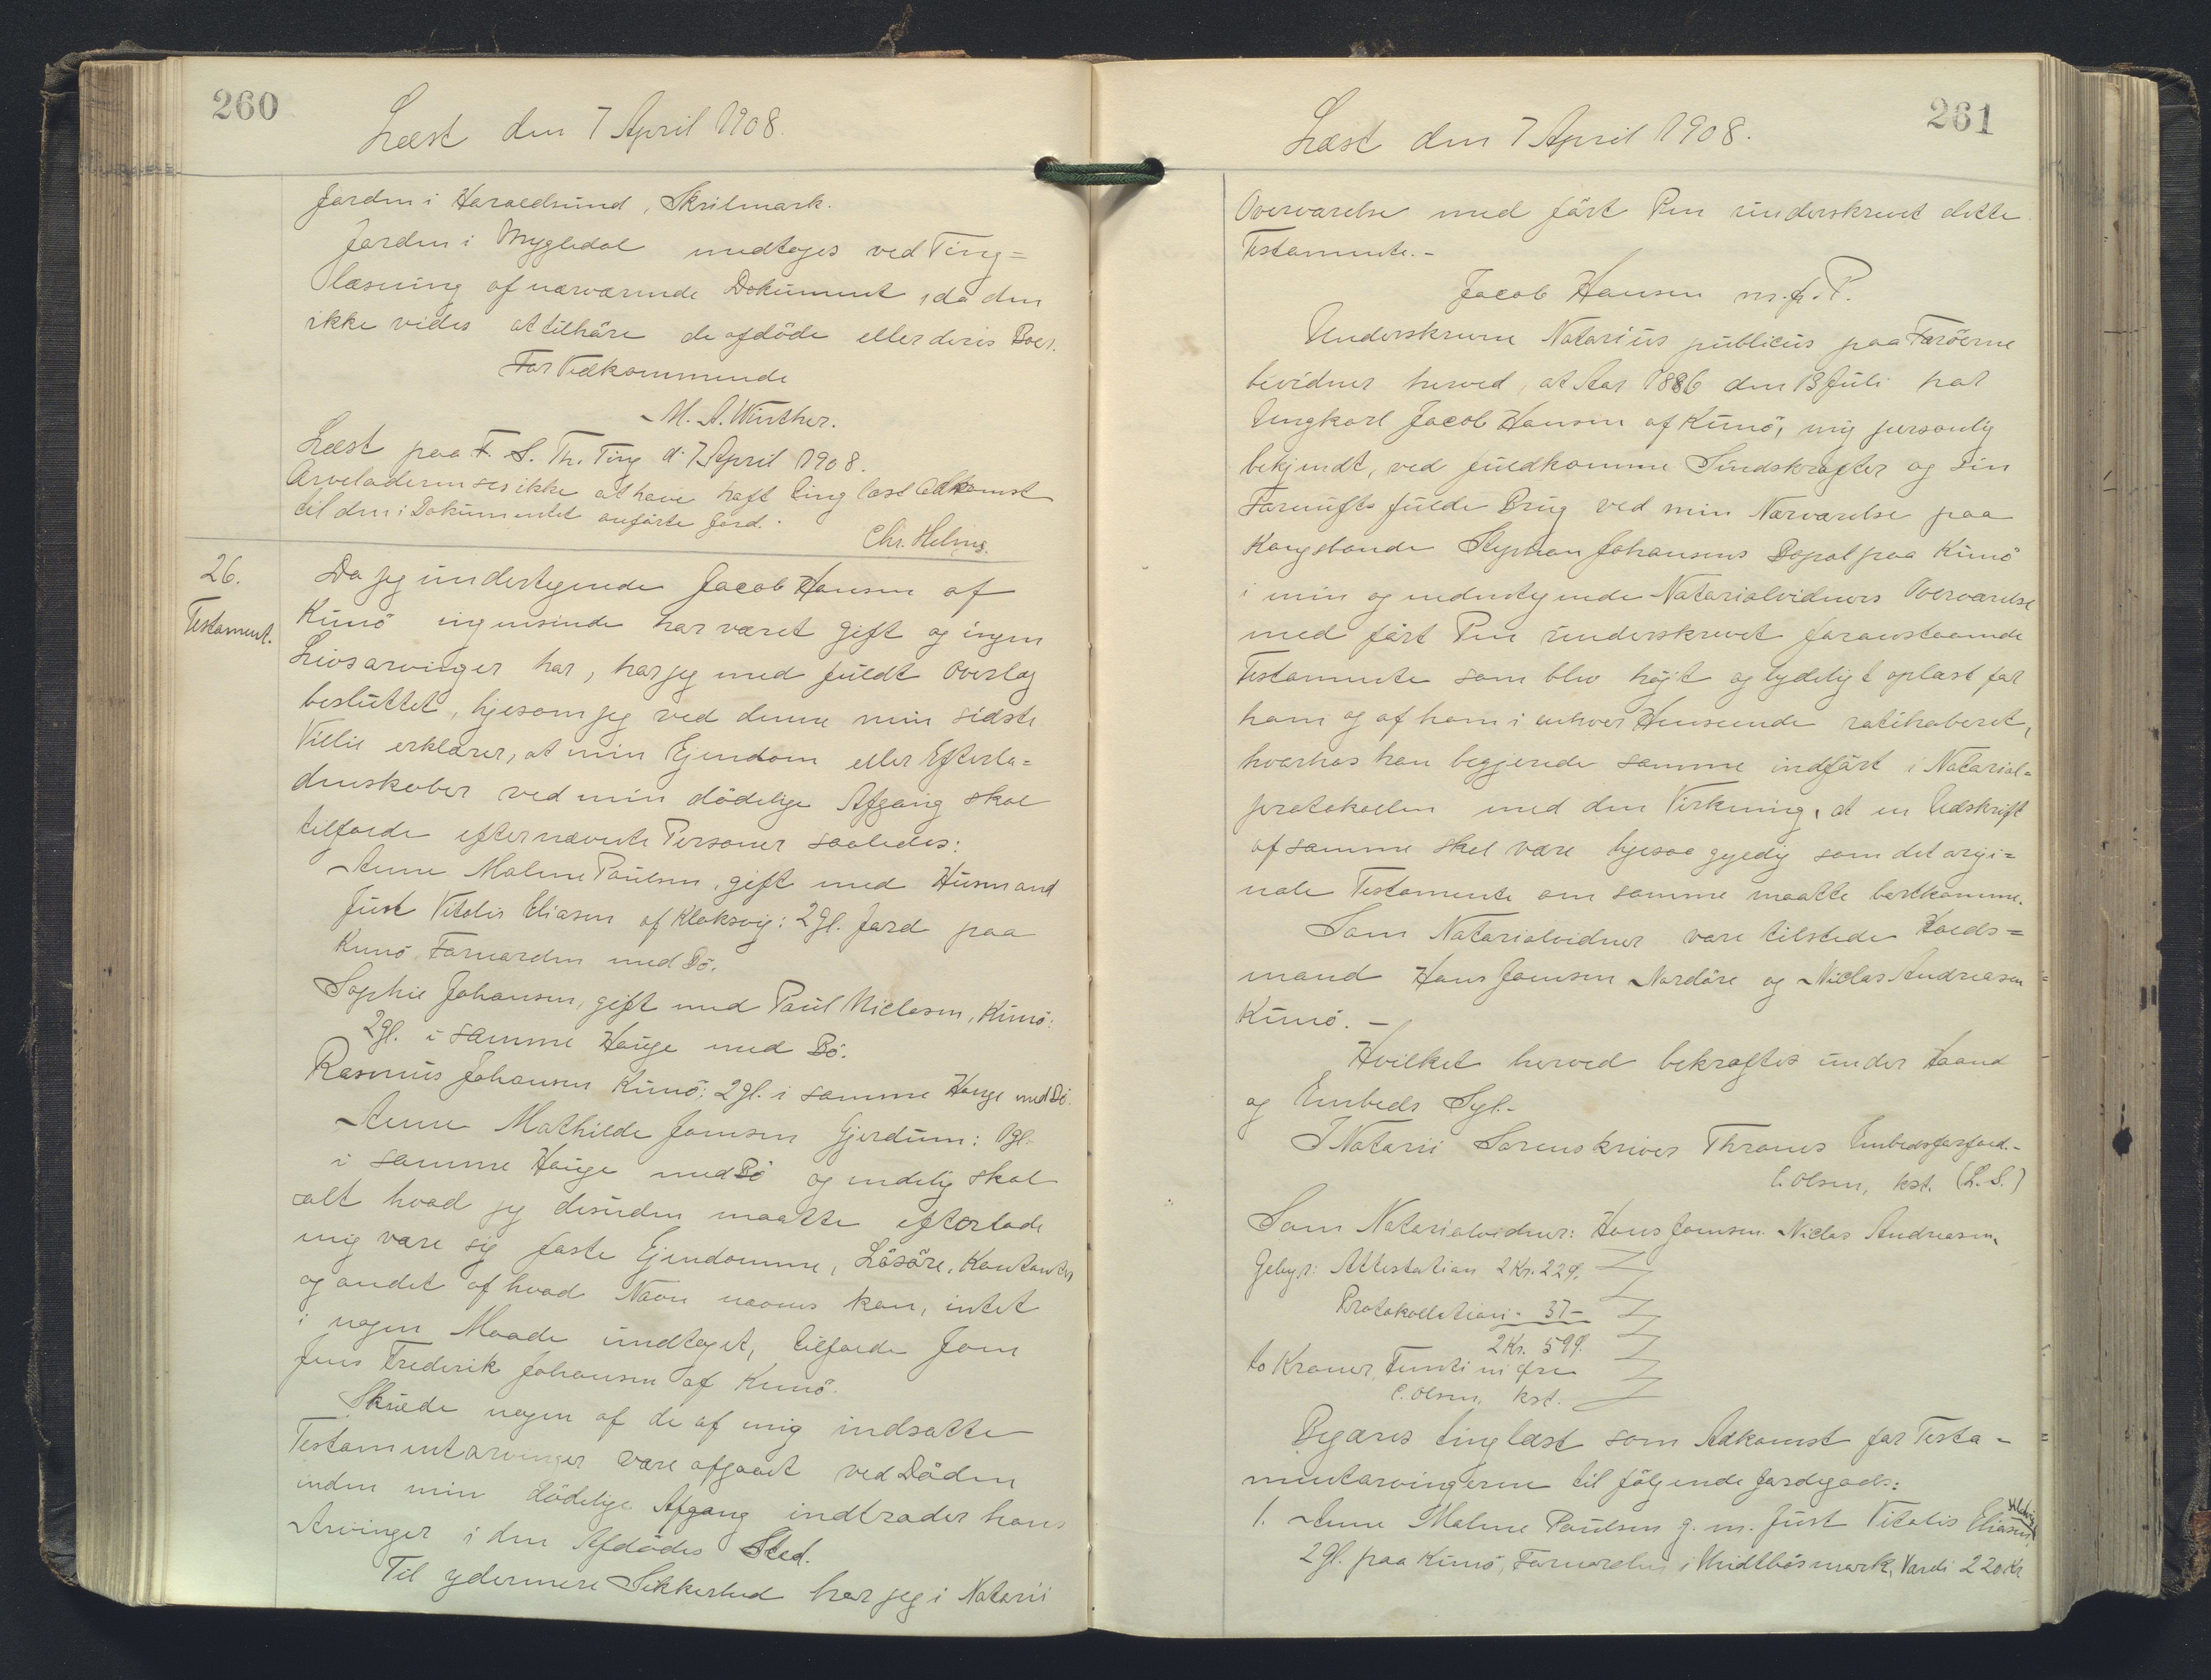 260
Læst den 7 April 1908.
Jorden i Haraldsund, Skrilmark.
Jorden i Mygledal undtages ved Ting=
læsning af nærværende Dokument, da den
ikke vides at tilhøre de afdøde eller deres Boer.
For Vedkommende
M. A. Winther.
Læst paa F. S. Th. Ting d. 7 April 1908.
Arveladeren ses ikke at have haft tinglæst Adkomst
til den i Dokumentet anførte Jord.
Chr. Helms.
26.
Testament.
Da jeg undertegnede Jacob Hansen af
Kunö ingensinde har været gift og ingen
Livsarvinger har, har jeg med fuldt Overlæg
besluttet, ligesom jeg ved denne min sidste
Villie erklærer, at min Ejendom eller Efterla=
denskaber ved min dödelige Afgang skal
tilfalde efternævnte Personer saaledes:
Anne Malene Poulsen, gift med Husmand
Just Vitalis Eliasen af Klaksvig: 2 gl. Jord paa
Kunö, Fornorden med Bö.
Sophie Johansen, gift med Poul Niclasen, Kunö:
2 gl. i samme Hauge med Bö.
Rasmus Johansen Kunö: 2 gl. i samme Hauge med Bö.
Anne Mathilde Joensen Gjerdum: 1 gl.
i samme Hauge med Bö og endelig skal
alt hvad jeg desuden maatte efterlade
mig være sig faste Ejendomme, Lösöre, Kontanter
og andet af hvad Navn nævnes kan, intet
i nogen Maade undtaget, tilfalde Joen
Jens Frederik Johansen af Kunö.
Skulde nogen af de af mig indsatte
Testamentarvinger være afgaaet ved Döden
inden min dödelige Afgang indtræder hans
Arvinger i den Afdödes Sted.
Til ydermere Sikkerhed har jeg i Notarii
261
Læst den 7 April 1908.
Overværelse med fört Pen underskrevet dette
Testamente.-
Jacob Hansen m. f. P.
Underskrevne Notarius publicus paa Færöerne
bevidner herved, at Aar 1886 den 13 Juli har
Ungkarl Jacob Hansen af Kunö, mig personlig
bekjendt, ved fuldkomne Sindskræfter og sin
Fornufts fulde Brug ved min Nærværelse paa
Kongsbonde Stephan Johansens Bopæl paa Kunö
i min og nedentegnede Notarialvidners Overværelse
med fört Pen underskrevet foranstaaende
Testamente som blev höjt og tydeligt oplæst for
ham og af ham i enhver Henseende ratihaberet,
hvorhos han begjerede samme indfört i Notarial=
protokollen med den Virkning, at en Udskrift
af samme skal være ligesaa gyldig som det origi=
nale Testamente om samme maatte bortkomme.
Som Notarialvidner vare tilstede Hoeds=
mand Hans Joensen Nordöre og Niclas Andreasen
Kunö. -
Hvilket herved bekræftes under Haand
og Embeds Segl.-
I Notarii Sorenskriver Thranes Embedsforfald.-
C. Olsen, kst. (L. S.)
Som Notarialvidner: Hans Joensen. Niclas Andreasen.
Gebyr: Attestation 2 Kr. 22 Ø.
Protokollation - 37 -
2 Kr. 59 Ø.
to Kroner, Femti ni Øre
C. Olsen, kst.
Begæres tinglæst som Adkomst for Testa=
mentarvingerne til fölgende Jordegods:
1. Anne Malene Poulsen g. m. Just Vitalis Eliasen,
2 gl. paa Kunö, Fornorden, i Midtbösmark, Værdi 220 Kr